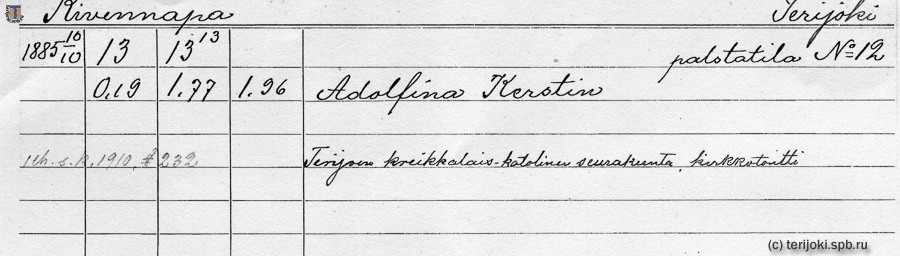 Kivennapa Terijoki
1885 10/10 13 13 13 palstatila № 12
0,19 1.77 1.96 Adolfina Kerstin
1910, # 232 Terijoen kreikkalais-katolinen seurakunta, kirkkotontti
(c) terijoki.spb.ru